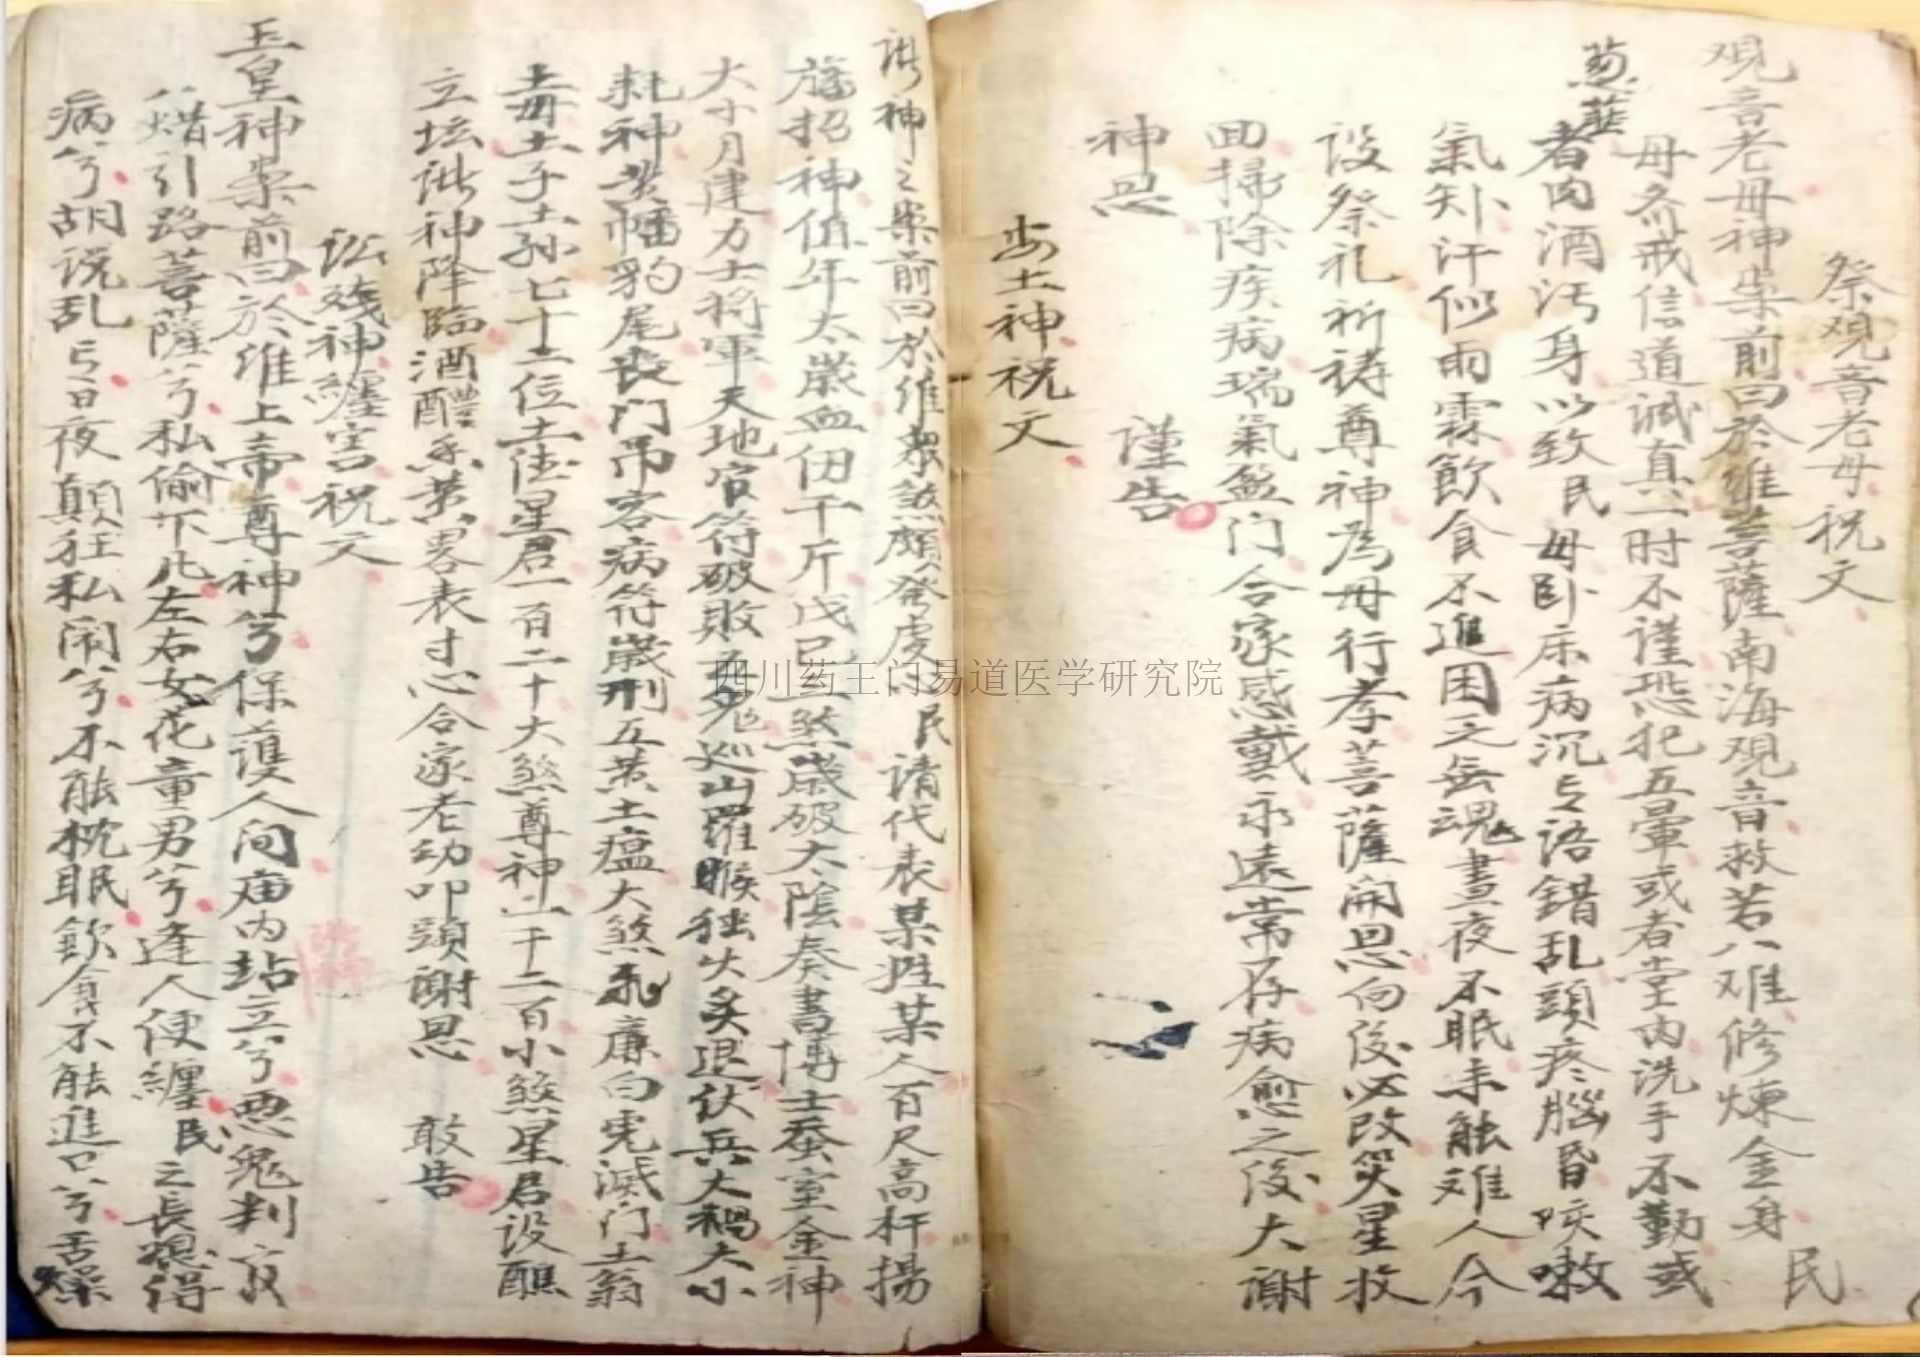 祭观音老母祝文
观音老母神案前曰於维菩萨南海观音救苦八难修煉金身 民
母斋戒信道诚真一时不谨恐犯五暈或者堂内洗手不勤或
葱韮
者肉酒污身以致民母卧床病沉言语錯乱頭疼腦昏咳嗽
氣短汗似雨霖飲食不進困乏無魂晝夜不眠未能难人今
设祭礼祈祷尊神為母行孝菩薩開恩向後必改災星扠
回掃除疾病瑞氣盈门合家感戴永遠常存病愈之後大謝
神恩 谨告
安土神祝文
诸神之案前曰於维聚煞廟發虔 民请代表某姓某人百尺高杆揚
旛招神值年太歲血刃千斤戊己煞歲破太陰奏書博士蚕室金神
大小月建力士将軍天地官符破敗五鬼巡山羅睺独火炙退伏兵大禍大小
耗神黄幡豹尾喪门吊客病符歲刑五黄土瘟大煞飛廉白虎滅门土翁
土母土子土孙七十二位土陡星君一百二十大煞尊神一千二百小煞星君设醮
立坛诸神降臨酒醴香茶畧表寸心合家老幼叩頭謝恩 敢告
訟殘神纏害祝文
玉皇神案前曰於维上帝尊神兮保護人间庙内站立兮惡鬼判官
八蜡引路菩薩兮私偷下凡左右女花童男兮逢人便纏民之長媳得
病兮胡说乱言日夜顛狂私闹兮不能枕眠飲食不能進口兮舌燥
四川药王门易道医学研究院